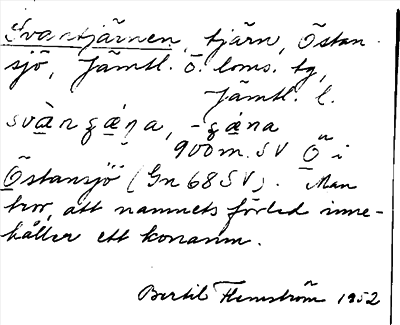 Svartjärnen, tjärn, Östan-
sjö, Jämtl. ö. loms. tg,
Jämtl. l.
900 m. SV Ö i
Östansjö (Gn 68 SV). Man
tror, att namnets förled inne-
håller ett konamn.
Bertil Flemström 1952